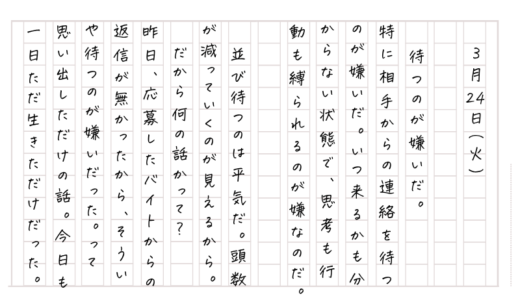 3月24日(火)
待つのが嫌いだ。
特に相手からの連絡を待つ
のが嫌いだ。いつ来るかも分
からない状態で、思考も行
動も縛られるのが嫌なのだ。
並び待つのは平気だ。頭数
が減っていくのが見えるから。
だから何の話かって?
昨日、応募したバイトからの
返信が無かったから、そうい
や待つのが嫌いだった。って
思い出しただけの話。今日も
一日ただ生きただけだった。